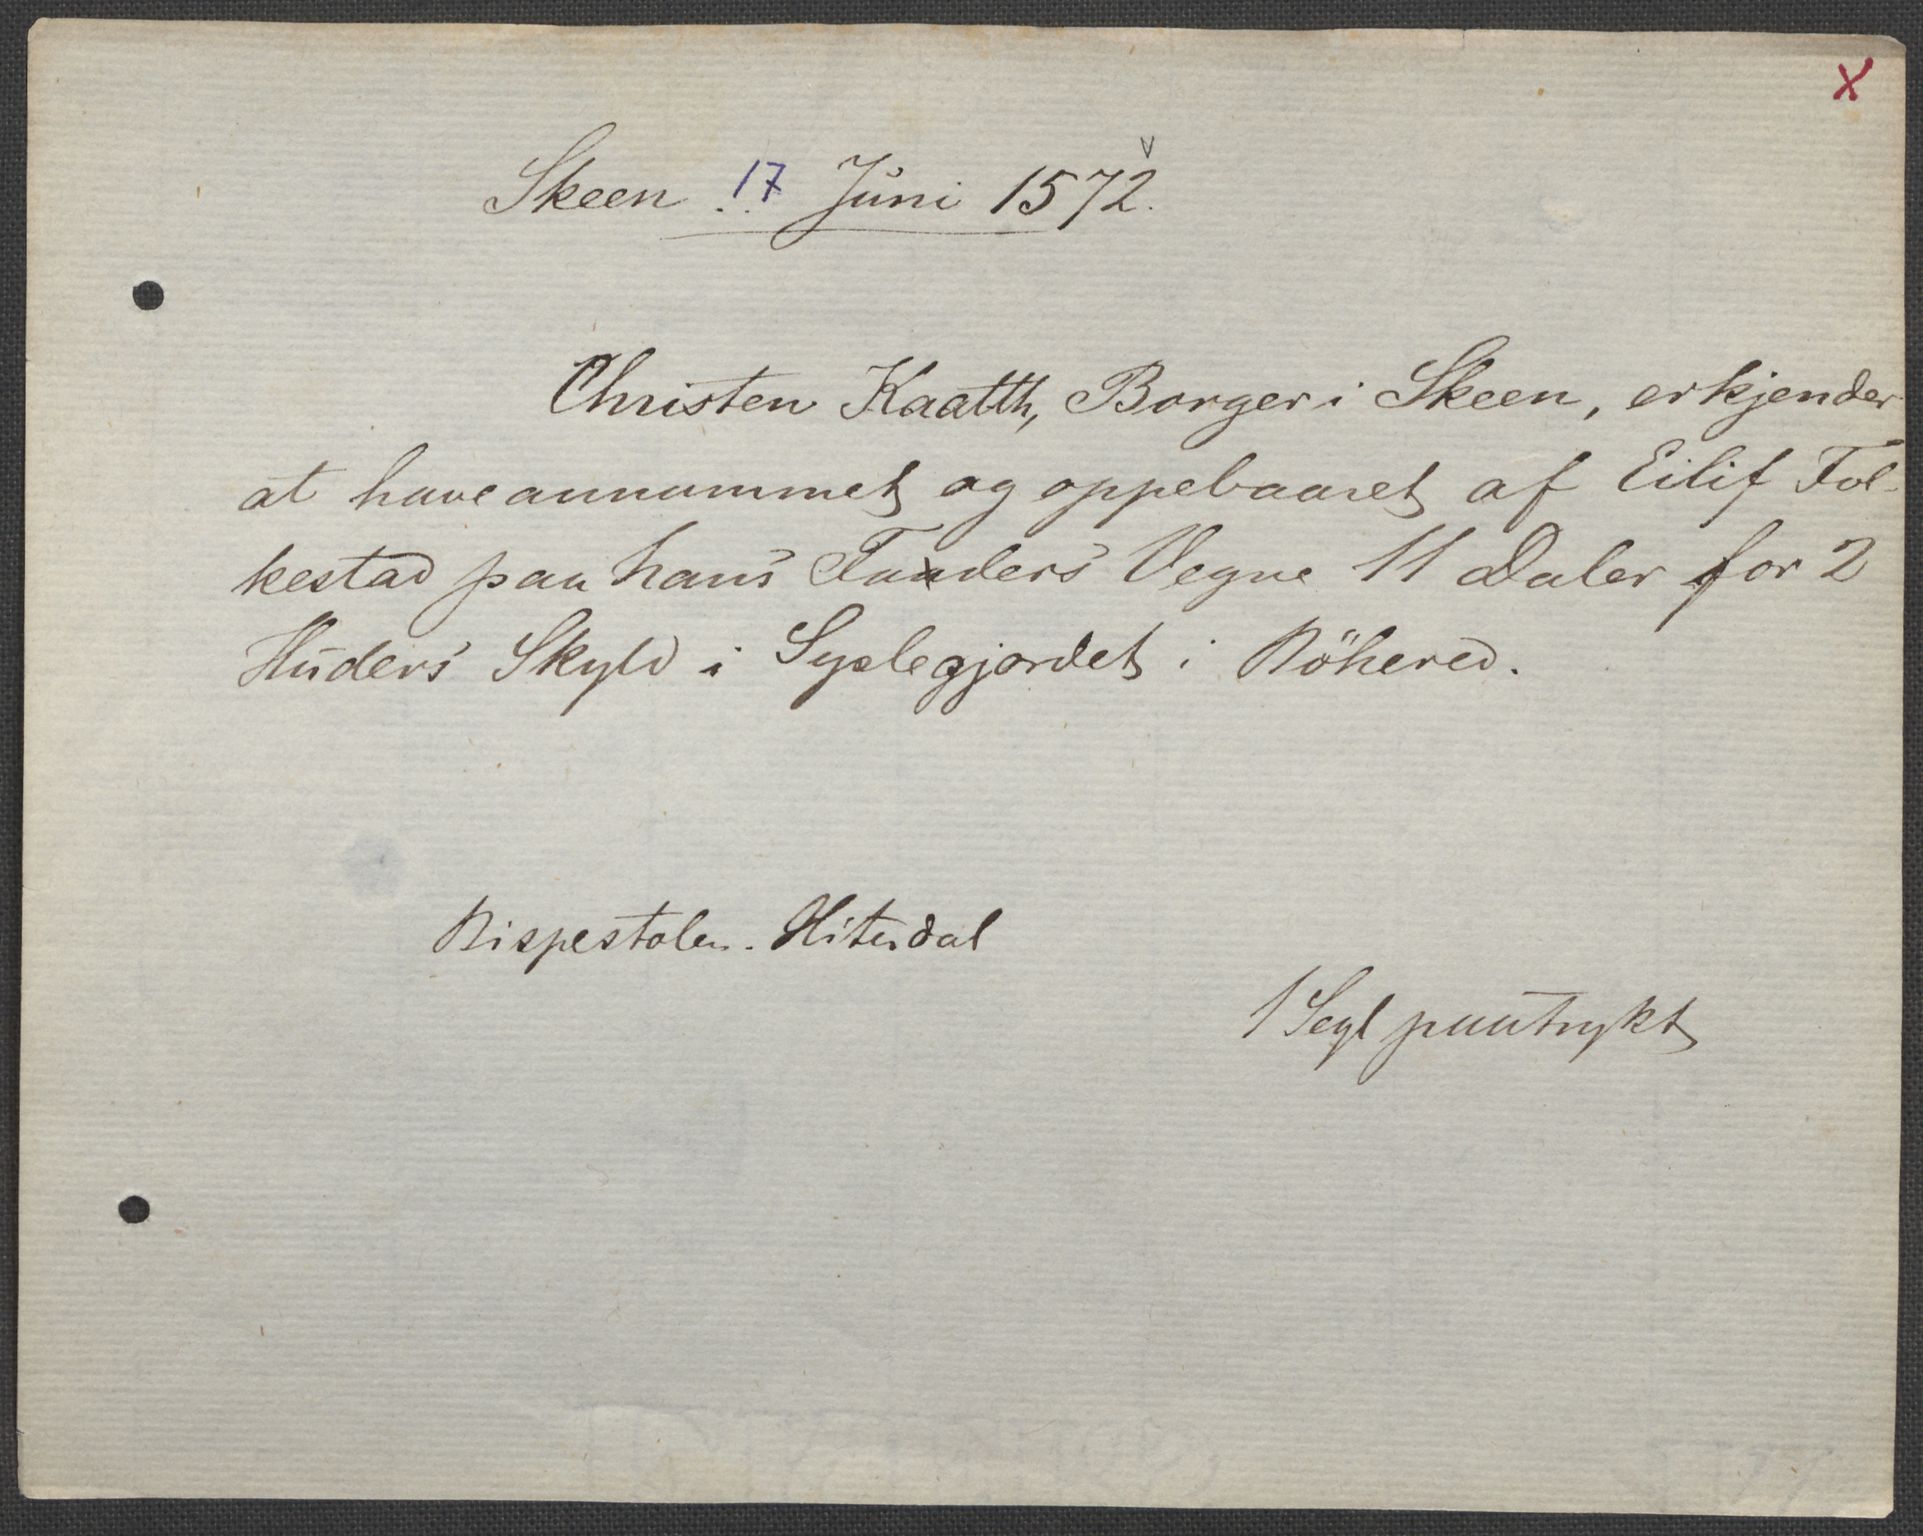 X
Skeen 17 Juni 1572.
Christen Kaatth, Borger i Skeen, erkjender
at have annammet og oppebaaret af Eilif Fol-
kestad paa hans Faders Vegne 11 Daler for 2
Huders Skyld i Syslegjordet i Böhered.
Bispestolen. Hiterdal
1 Segl paatrykt